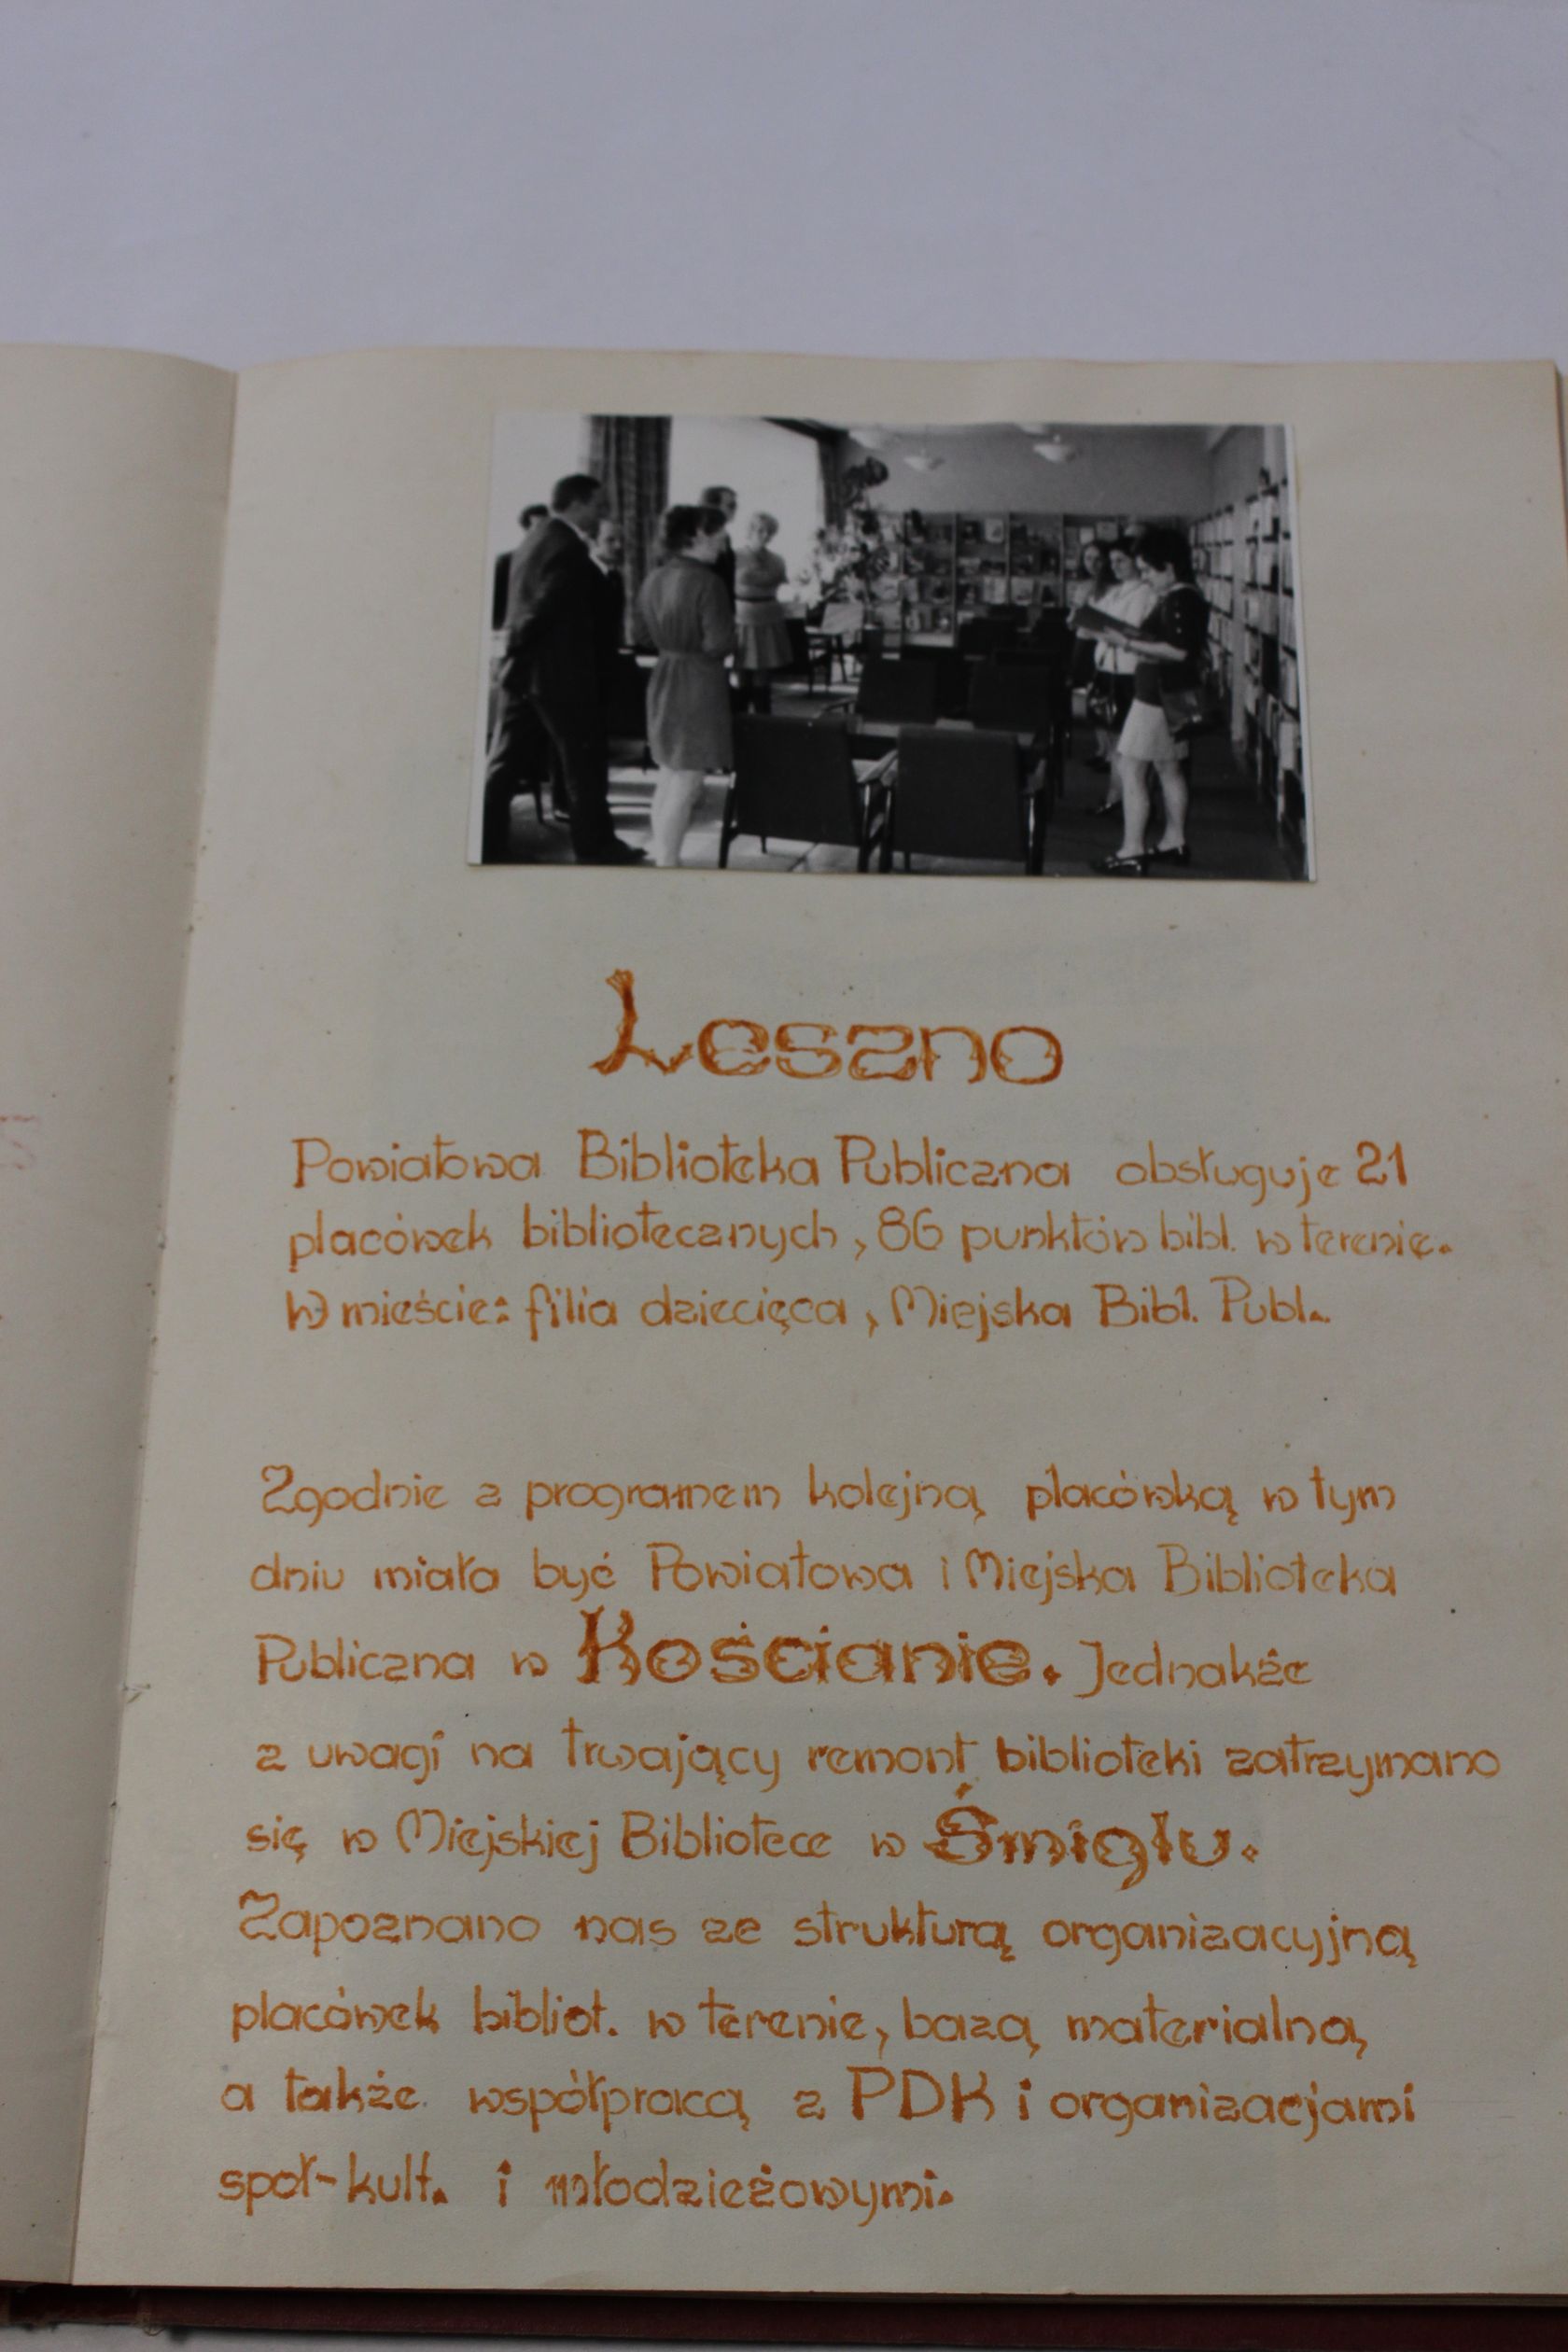 Leszno
Powiatowa Biblioteka Publiczna obsługuje 21
placówek bibliotecznych, 86 punktów bibl. w terenie.
W mieście: filia dziecięca, Miejska Bibl. Publ.
Zgodnie z programem kolejną placówką w tym
dniu miała być Powiatowa i Miejska Biblioteka
Publiczna w Kościanie. Jednakże
z uwagi na trwający remont biblioteki zatrzymano
się w Miejskiej Bibliotece w Śmiglu.
Zapoznano nas ze strukturą organizacyjną
placówek bibliot. w terenie, bazą materialną,
a także współpracą z PDK i organizacjami
społ-kult. i młodzieżowymi.